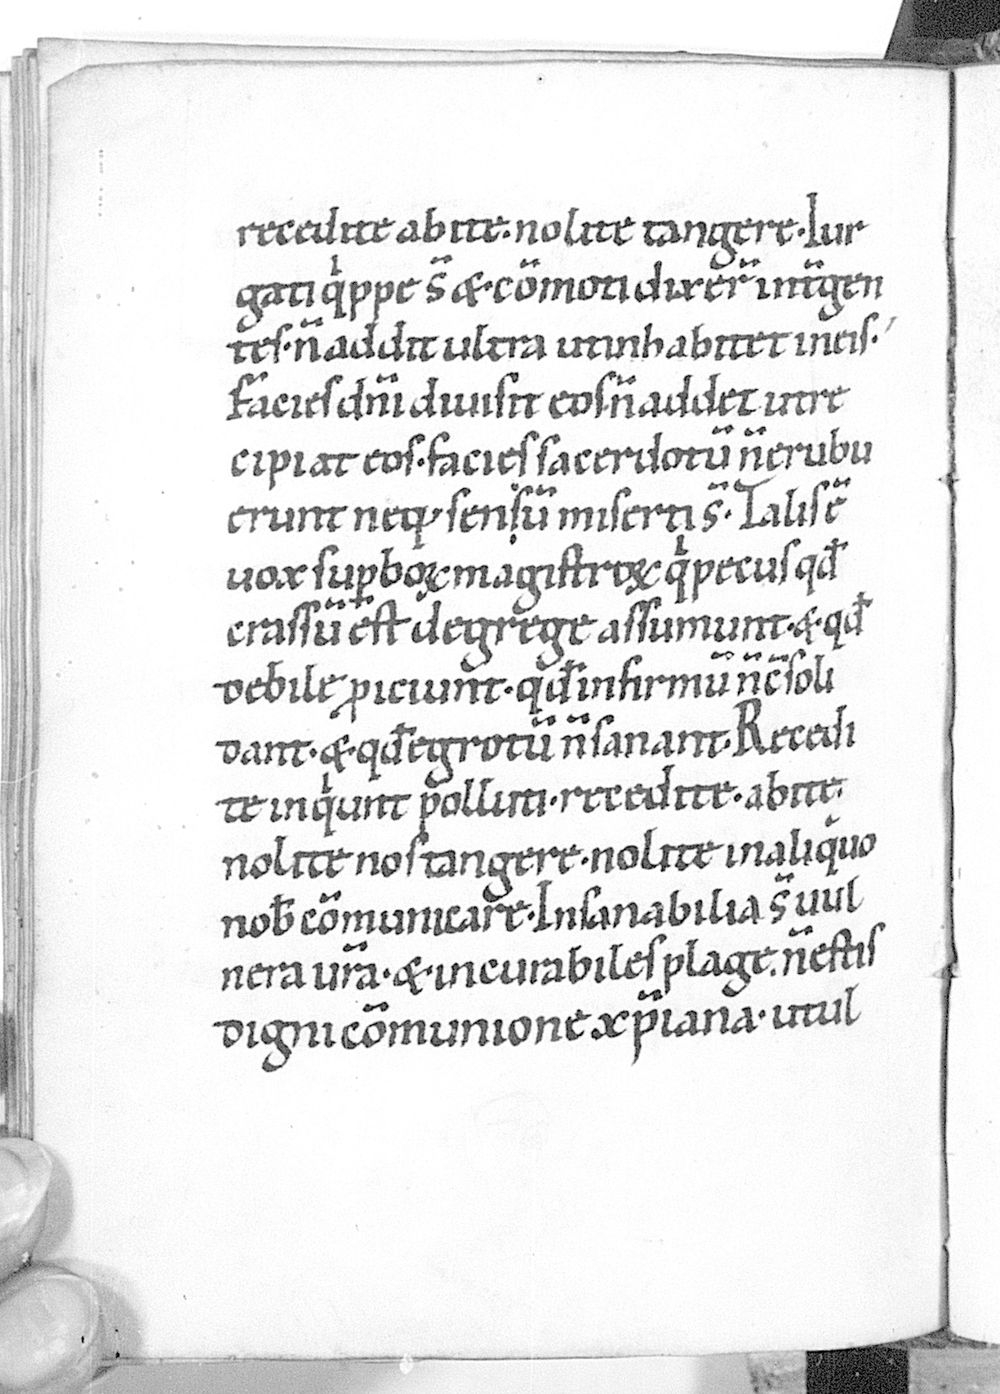 recedite abite·nolite tangere·Iur
gati qͥppe s̄ &·cōmoti dixer̄ int̄gen
tes·n̄ addit ultra utinhabitet ineis·
Facies dn̄i diuisit eos·n̄ addet utre
cipiat eos·facies sacerdotū n̄erubu
erunt neq; seniū miserti s̄·Talis ē
uox suꝑboꝝ magistroꝝ qͥ pecus qđ
crassū est degrege assumunt·&·qđ
debile ꝓiciunt·qđ infirmū n̄ c̄soli
dant·&·qđ egrotū n̄ sanant·Recedi
te inqͥunt polluti·recedite·abite·
nolite nos tangere·nolite inaliquo
nob̄ cōmunicare·Insanabilia s̄ uul
nera ur̄a·&·incurabiles plage·n̄ estis
digni cōmunione xp̄iana·utul